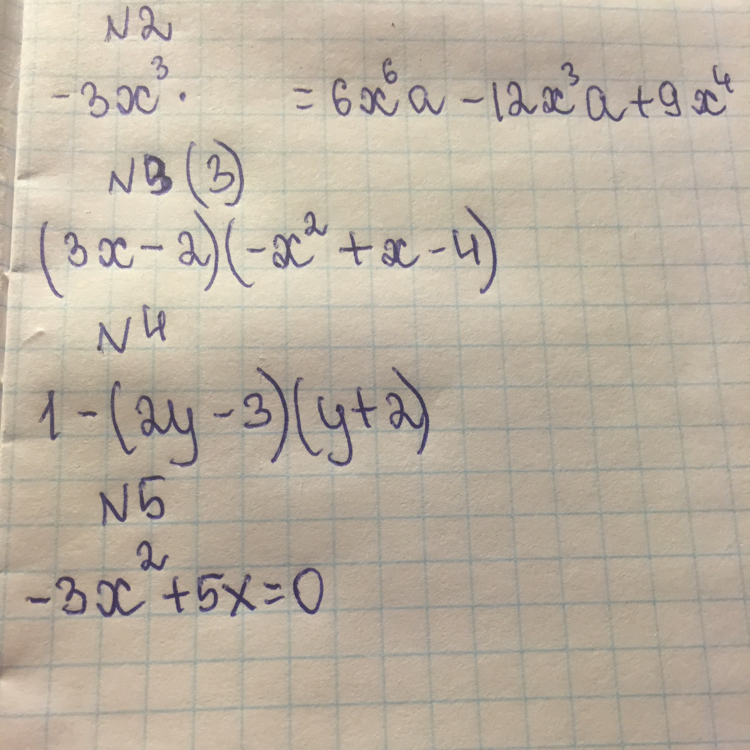 N2
-3x³· = 6x⁶a - 12x³a + 9x⁴
N3 (3)
(3x - 2)(-x² + x - 4)
N4
1 - (2y - 3)(y + 2)
N5
-3x² + 5x = 0